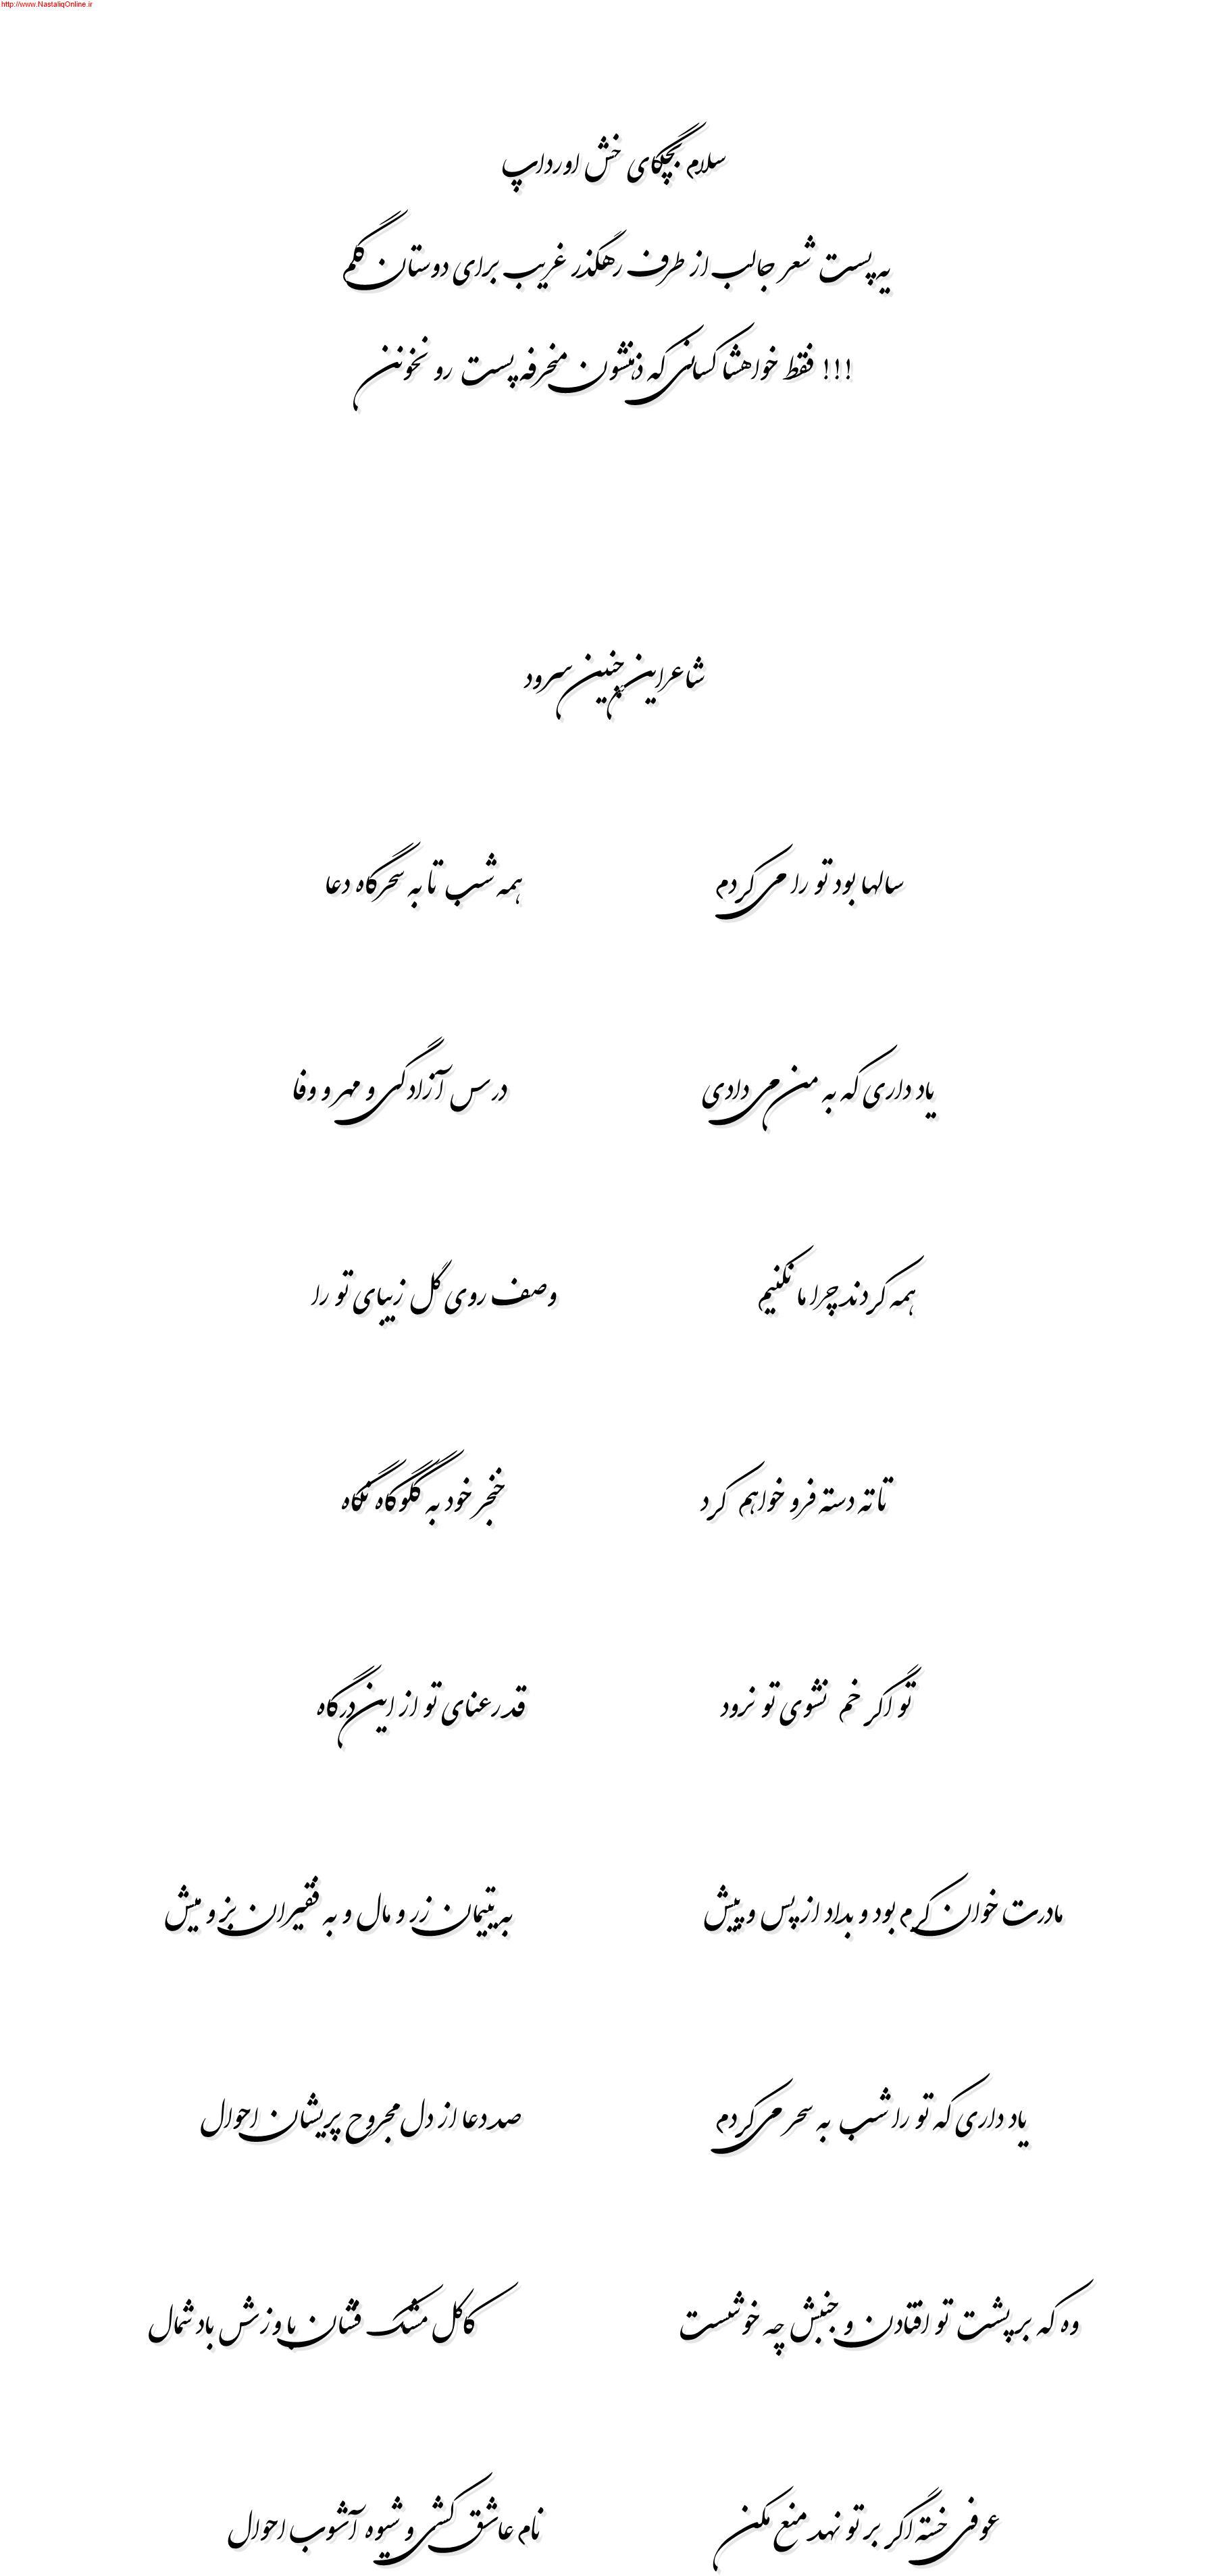 http://www.NastaliqOnline.ir
سلام بچگای خش اورداپ
یه پست شعر جالب از طرف رهگذر غریب برای دوستان گلم
!!! فقط خواهشا کسانی که ذهنشون منحرفه پست رو نخونن
شاعر این چنین سرود
سالها بود تو را می کردم همه شب تا به سحرگاه دعا
یاد داری که به من می دادی درس آزادگی و مهر و وفا
همه کردند چرا ما نکنیم وصف روی گل زیبای تو را
تا ته دسته فرو خواهم کرد خنجر خود به گلوگاه نگاه
تو اگر خم نشوی تو نرود قد رعنای تو از این درگاه
مادرت خوان کرم بود و بداد از پس و پیش به یتیمان زر و مال و به فقیران بز و میش
یاد داری که تو را شب به سحر می کردم صد دعا از دل مجروح پریشان احوال
وه که بر پشت تو افتادن و جنبش چه خوشست کاکل مشک فشان با وزش باد شمال
عوفی خسته اگر بر تو نهد منع مکن نام عاشق کشی و شیوه آشوب احوال